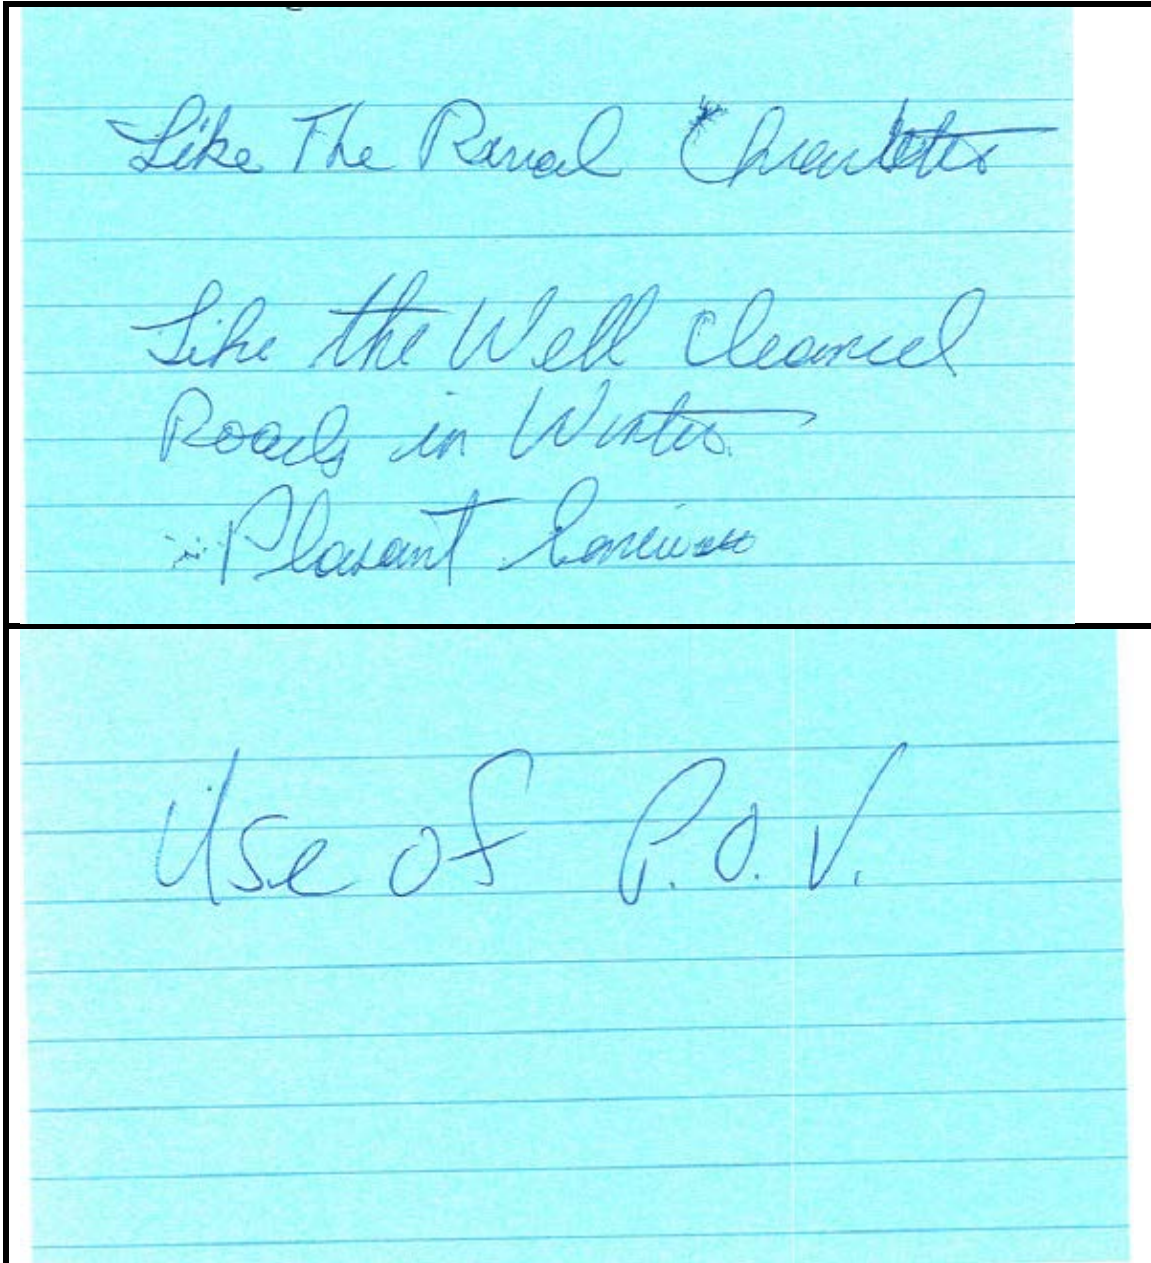 Like The Rural Character
Like the Well Cleaned
Roads in Winter
Plasant
Use of P.O.V.